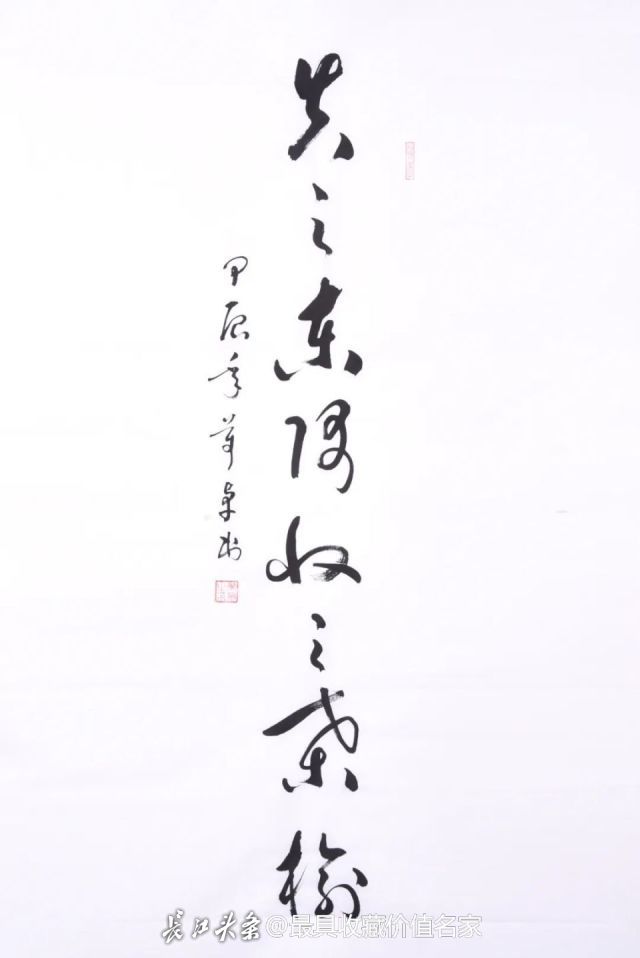 失之东隅收之桑榆
甲辰年
长江头条@最具收藏价值名家